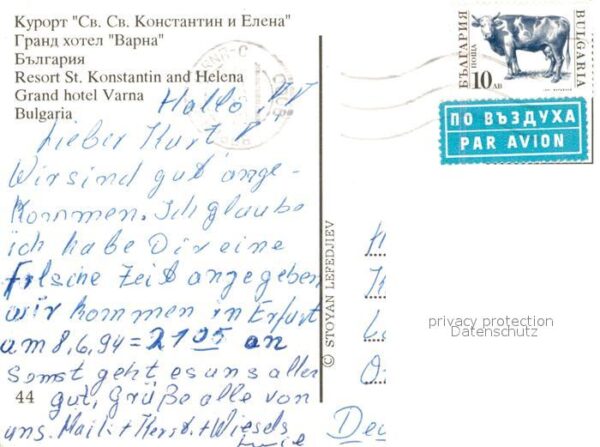 Курорт "Св. Св. Константин и Елена"
Гранд хотел "Варна"
България
Resort St. Konstantin and Helena
Grand hotel Varna
Bulgaria
Hallo !!
Lieber Kurt
Wir sind gut ange-
kommen. Ich glaube
ich habe Dir eine
Falsche Zeit angegeben
wir kommen in Erfurt
am 8.6.94 = 2105 an
Sonst geht es uns allen
gut, Grüße alle von
uns.
44
БЪЛГАРИЯ
ПОЩА
10 ЛВ
BULGARIA
ПО ВЪЗДУХА
PAR AVION
© STOYAN LEFEDJIEV
privacy protection
Datenschutz